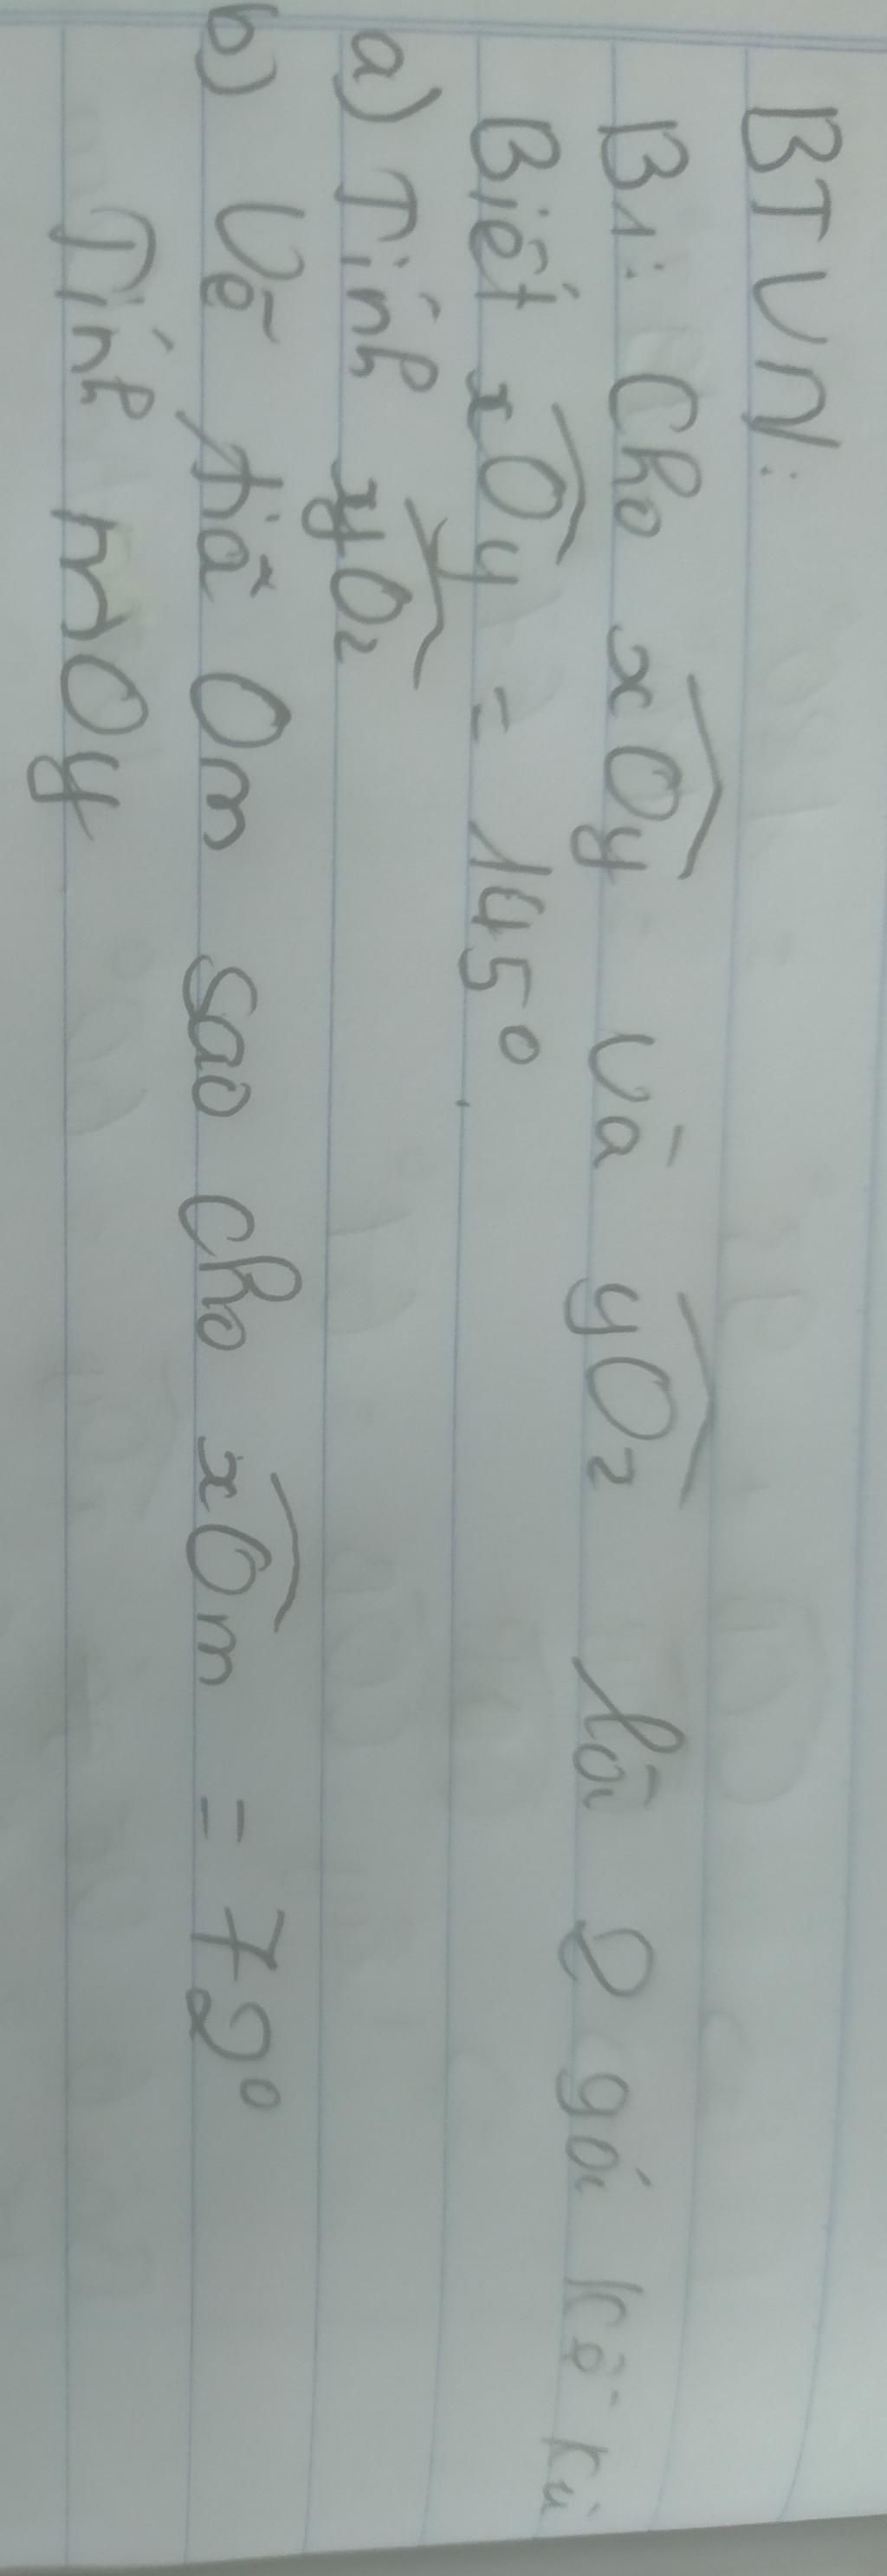 BTVN:
B1: Cho xOy và yOz là 2 góc kề bù
Biết xOy = 145°.
a) Tính yOz
b) Vẽ tia Om sao cho xOm = 72°
Tính mOy